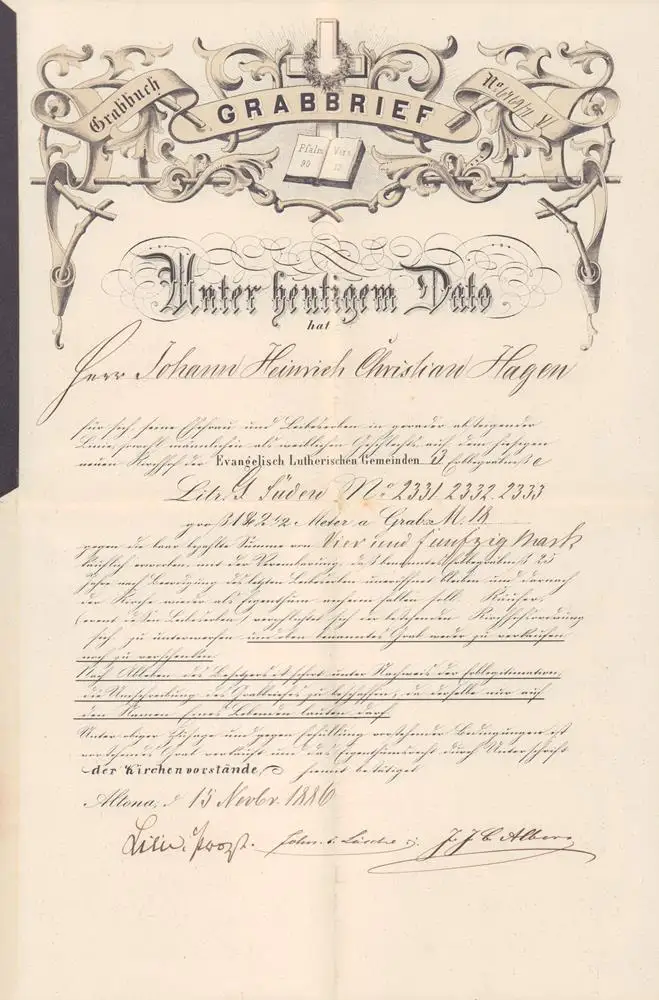 Grabbuch
GRABBRIEF
Psalm 90
Vers 12
Unter heutigem Dato
hat
Herr Johann Heinrich Christian Hagen
für sich seine Ehefrau und Leibeserben in gerader absteigender
Linie, sowohl männlichen als weiblichen Geschlechts auf dem hiesigen
neuen Kirchhof der Evangelisch Lutherischen Gemeinden 3 Erbbegräbniße
Süden No 2331. 2332. 2333
groß 1 & 2 1/2 Meter a Grab M: 18
gegen die baar bezahlte Summe von Vier und fünfzig Mark
käuflich erworben, mit der Vereinbarung, daß benanntes Erbbegräbniß 25
Jahre nach Beerdigung des letzten Leibeserben uneröffnet bleiben und darnach
der Kirche wieder als Eigenthum anheim fallen soll. Käufer,
(event. dessen Leibeserben) verpflichtet sich der bestehenden Kirchhofsordnung
sich zu unterwerfen und oben benanntes Grab weder zu verkaufen
noch zu verschenken.
Nach Ableben des Besitzers ist sofort unter Nachweis der Erblegitimation,
die Umschreibung des Grabbriefes zu beschaffen, da derselbe nur auf
den Namen Eines Lebenden lauten darf.
Unter obiger Zusage und gegen Erfüllung vorstehender Bedingungen ist
vorstehendes Grab verkauft und das Eigenthumsrecht durch Unterschrift
der Kirchenvorstände, hiemit bestätiget
Altona, d 15 Novbr. 1886
Propst.
J. J. C. Albers